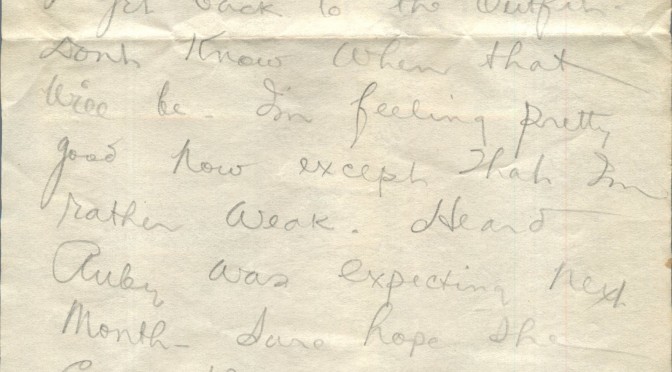 get back to the Outfit.
Dont Know When that
Will be. Im feeling pretty
good now except that Im
rather weak. Heard
Ruby was expecting next
Month - Sure hope she